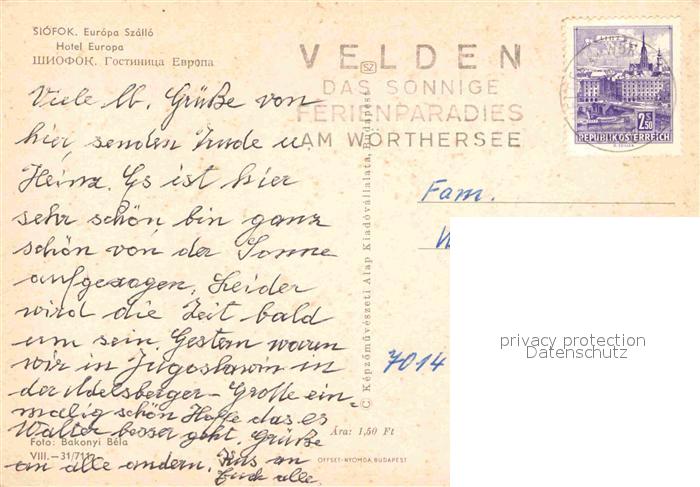 SIÓFOK. Európa Szálló
Hotel Europa
ШИОФОК. Гостиница Европа
VELDEN
DAS SONNIGE
FERIENPARADIES
AM WÖRTHERSEE
SZ
2 S 50
REPUBLIK ÖSTERREICH
Viele lb. Grüße von
hier, senden Trude u
Heinz. Es ist hier
sehr schön, bin ganz
schön von der Sonne
aufgezogen. Leider
wird die Zeit bald
um sein. Gestern waren
wir in Jugoslawin in
der Adelsberger-Grotte ein-
malig schön Hoffe das es
Walter besser geht. Grüße
an alle andern. Kus an
Euch alle.
Foto: Bakonyi Béla
VIII.—31/711
© Képzőművészeti Alap Kiadóvállalata, Budapest
Ára: 1,50 Ft
OFFSET-NYOMDA, BUDAPEST
Fam.
7014
privacy protection
Datenschutz